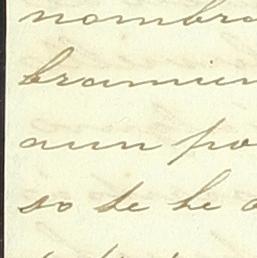 nombra
bramien
aun po
so se le a